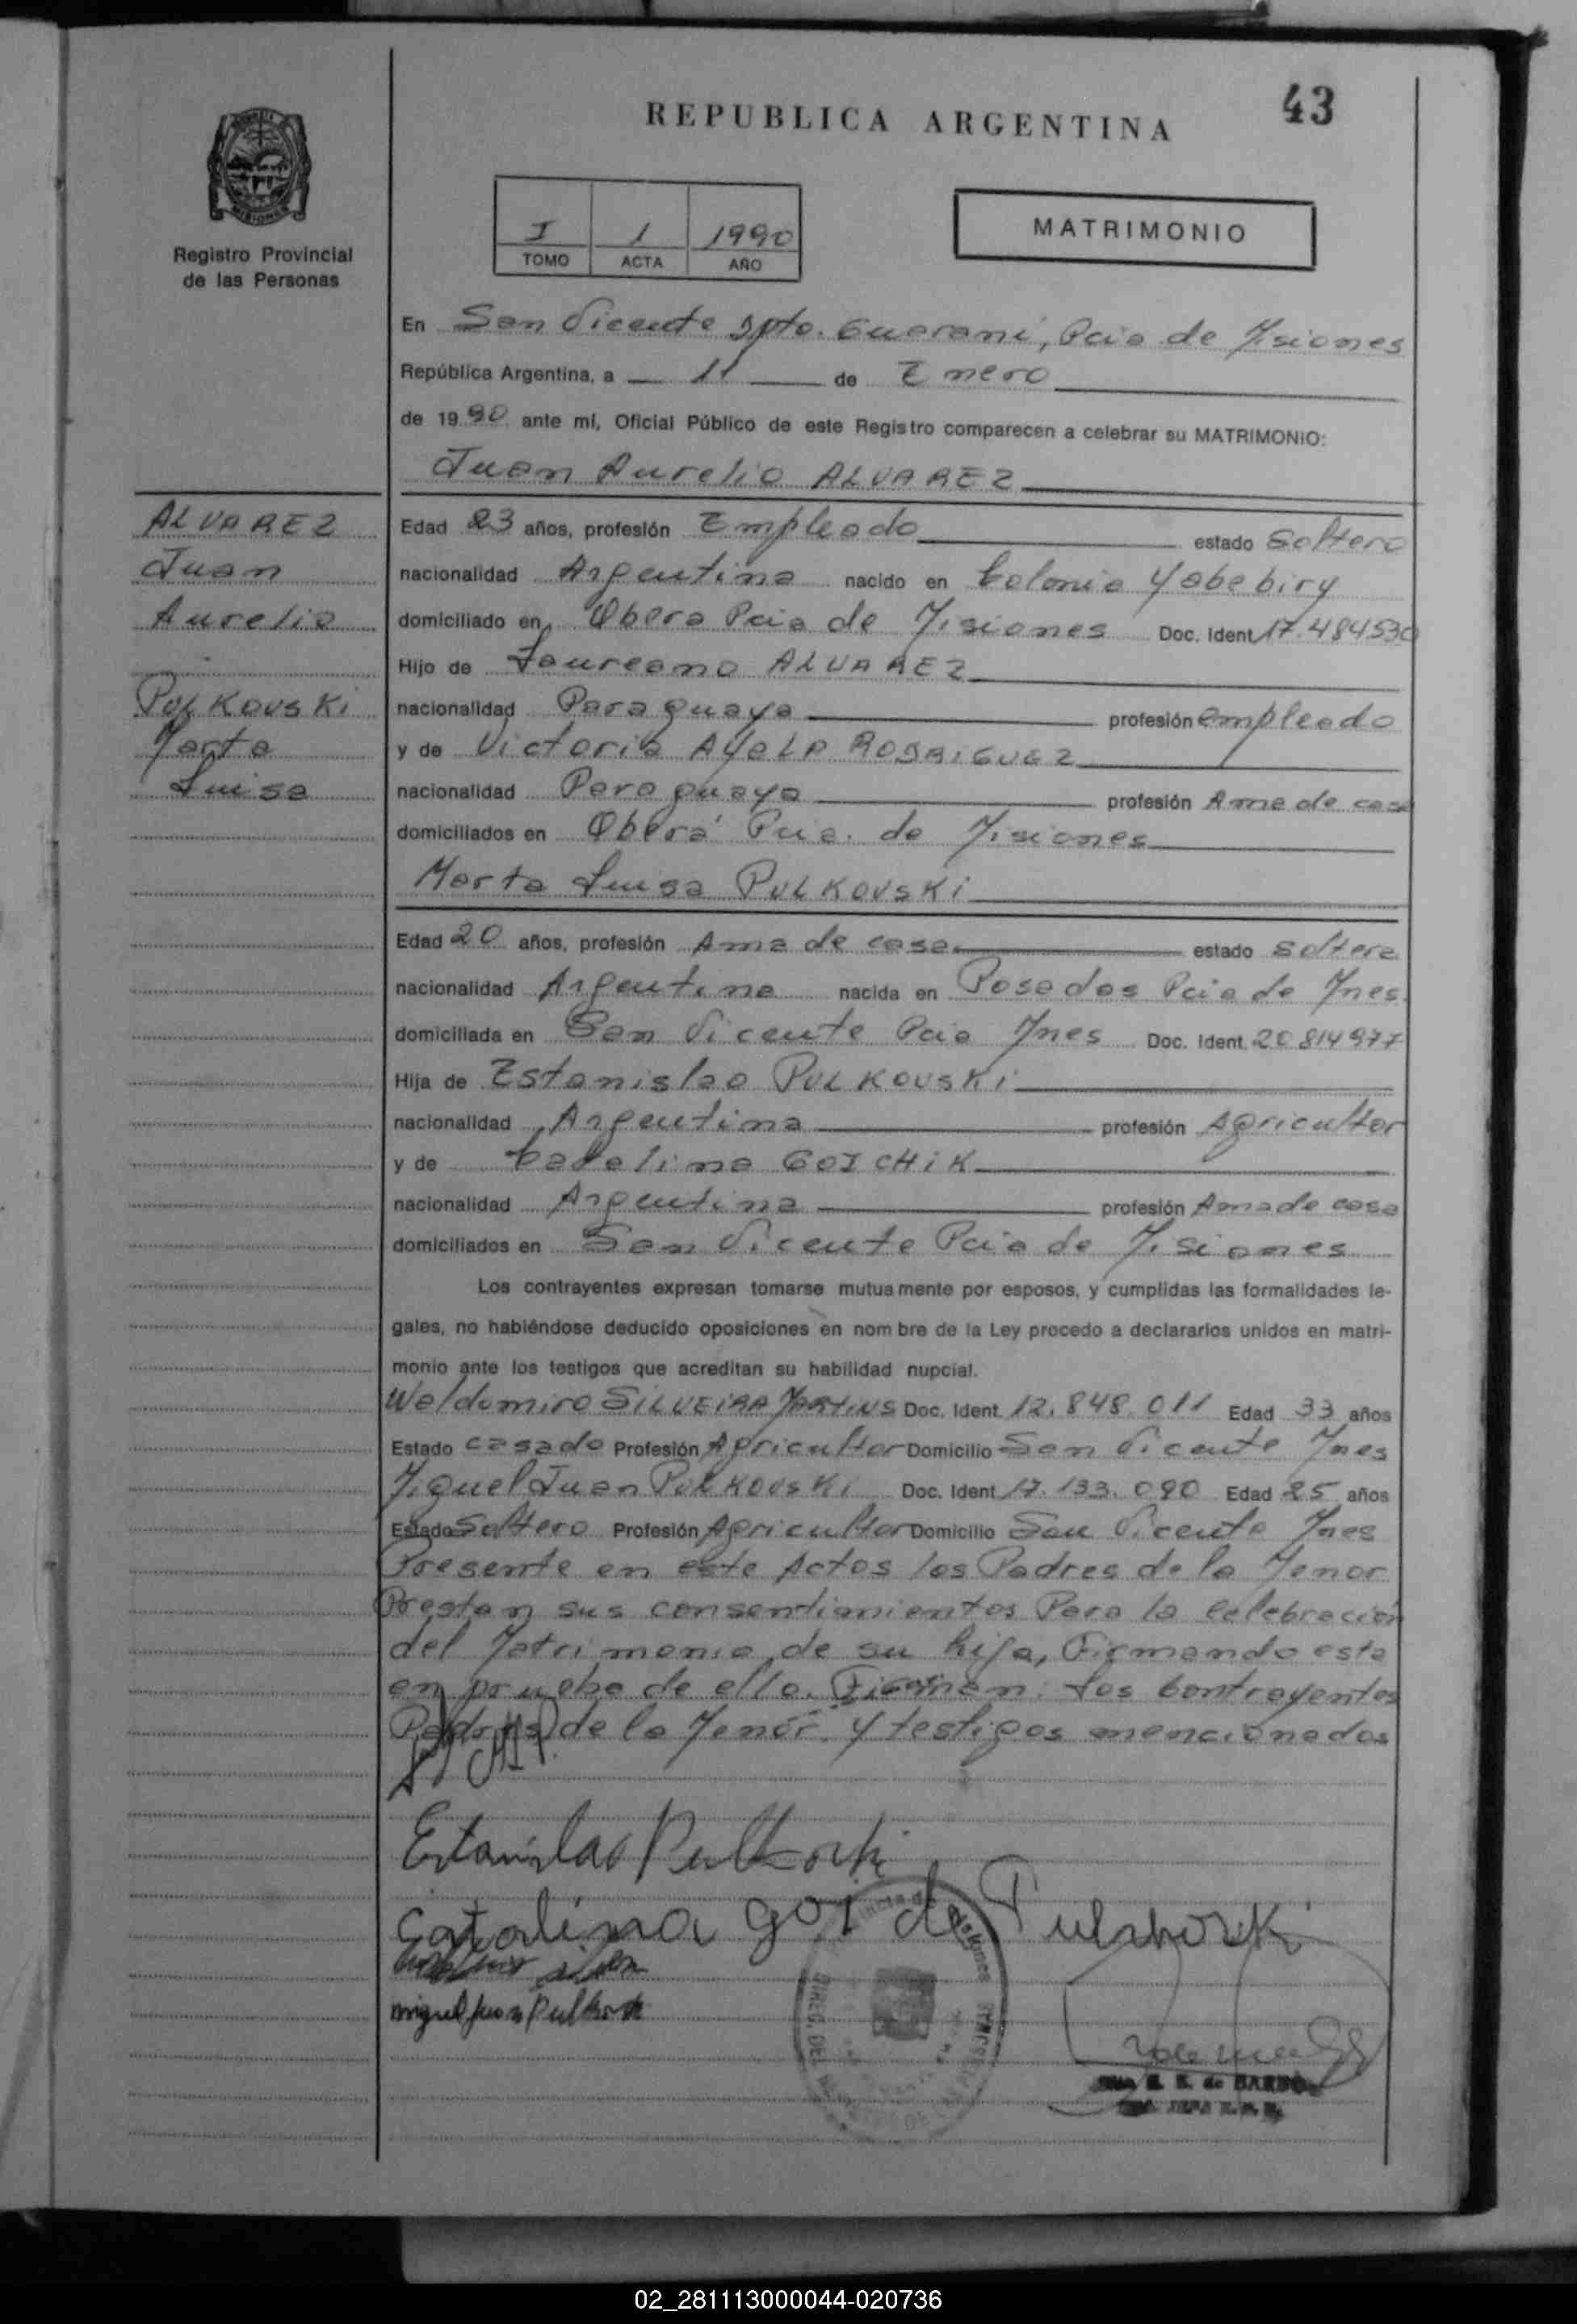 REPUBLICA ARGENTINA
43
MISIONES
Registro Provincial
de las Personas
I 1 1990
TOMO ACTA AÑO
MATRIMONIO
En San Vicente Dpto. Guaraní, Pcia de Misiones
República Argentina, a 11 de Enero
de 1990 ante mí, Oficial Público de este Registro comparecen a celebrar su MATRIMONIO:
Juan Aurelio ALVAREZ
ALVAREZ
Juan
Aurelio
PULKOVSKi
Marta
Luisa
Edad 23 años, profesión Empleado estado Soltero
nacionalidad Argentina nacido en Colonia Yabebiry
domiciliado en Obera Pcia de Misiones Doc. Ident. 17.484530
Hijo de Laureano ALVAREZ
nacionalidad Paraguaya profesión empleado
y de Victoria AYALA RODRIGUEZ
nacionalidad Paraguaya profesión Ama de casa
domiciliados en Oberá Pcia. de Misiones
Marta Luisa PULKOVSKi
Edad 20 años, profesión Ama de casa estado soltera
nacionalidad Argentina nacida en Posadas Pcia de Mnes.
domiciliada en San Vicente Pcia Mnes Doc. Ident. 20.814977
Hija de Estanislao PULKOVSKi
nacionalidad Argentina profesión Agricultor
y de GOICHiK
nacionalidad Argentina profesión Ama de casa
domiciliados en San Vicente Pcia de Misiones
Los contrayentes expresan tomarse mutuamente por esposos, y cumplidas las formalidades le-
gales, no habiéndose deducido oposiciones en nombre de la Ley procedo a declararlos unidos en matri-
monio ante los testigos que acreditan su habilidad nupcial.
Waldomiro SiLVEiRA MARTiNS Doc. Ident. 12.848.011 Edad 33 años
Estado casado Profesión Agricultor Domicilio San Vicente Mnes
Miguel Juan PULKOVSKi Doc. Ident. 17.133.090 Edad 25 años
Estado Soltero Profesión Agricultor Domicilio San Vicente Mnes
Presente en este Actos los Padres de la Menor
Prestan sus consentimientos Para la celebración
del Matrimonio de su hija, Firmando esta
en prueba de ello. Firman: Los Contrayentes
Padres de la Menor y testigos mencionados
Estanislao Pulkovski
Catalina goi de Pulkovski
miguel juan Pulkovski
02_281113000044-020736